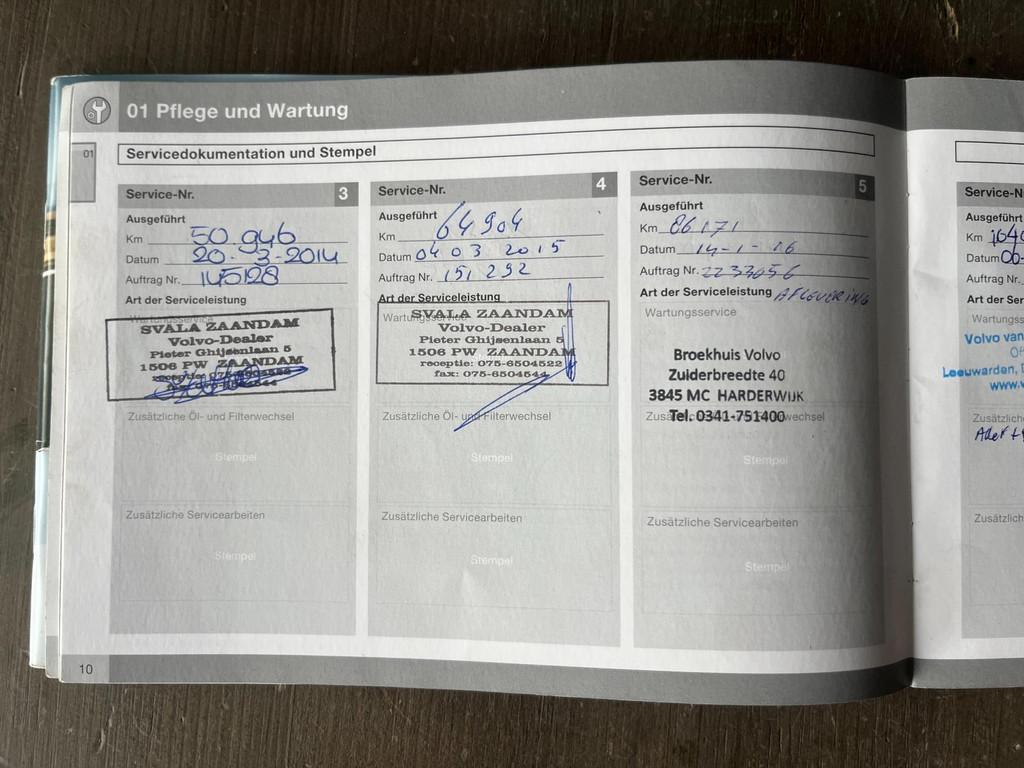 01 Pflege und Wartung
01
Servicedokumentation und Stempel
Service-Nr. 3
Ausgeführt
Km 50.946
Datum 20-3-2014
Auftrag Nr. 145128
Art der Serviceleistung
Wartungsservice
SVALA ZAANDAM
Volvo-Dealer
Pieter Ghijsenlaan 5
1506 PW ZAANDAM
receptie: 075-6504522
Zusätzliche Öl- und Filterwechsel
Stempel
Zusätzliche Servicearbeiten
Stempel
Service-Nr. 4
Ausgeführt
Km 64904
Datum 04 03 2015
Auftrag Nr. 151 292
Art der Serviceleistung
Wartungsservice
SVALA ZAANDAM
Volvo-Dealer
Pieter Ghijsenlaan 5
1506 PW ZAANDAM
receptie: 075-6504522
fax: 075-6504544
Zusätzliche Öl- und Filterwechsel
Stempel
Zusätzliche Servicearbeiten
Stempel
Service-Nr. 5
Ausgeführt
Km 86171
Datum 14-1-16
Auftrag Nr. 2233656
Art der Serviceleistung AFLEVERING
Wartungsservice
Broekhuis Volvo
Zuiderbreedte 40
3845 MC HARDERWIJK
Tel. 0341-751400
Stempel
Zusätzliche Servicearbeiten
Stempel
10
Service-N
Ausgeführt
Km 1040
Datum 06-
Auftrag Nr.
Art der Ser
Wartungss
Volvo van
Leeuwarden,
www.
Zusätzlich
Zusätzlich